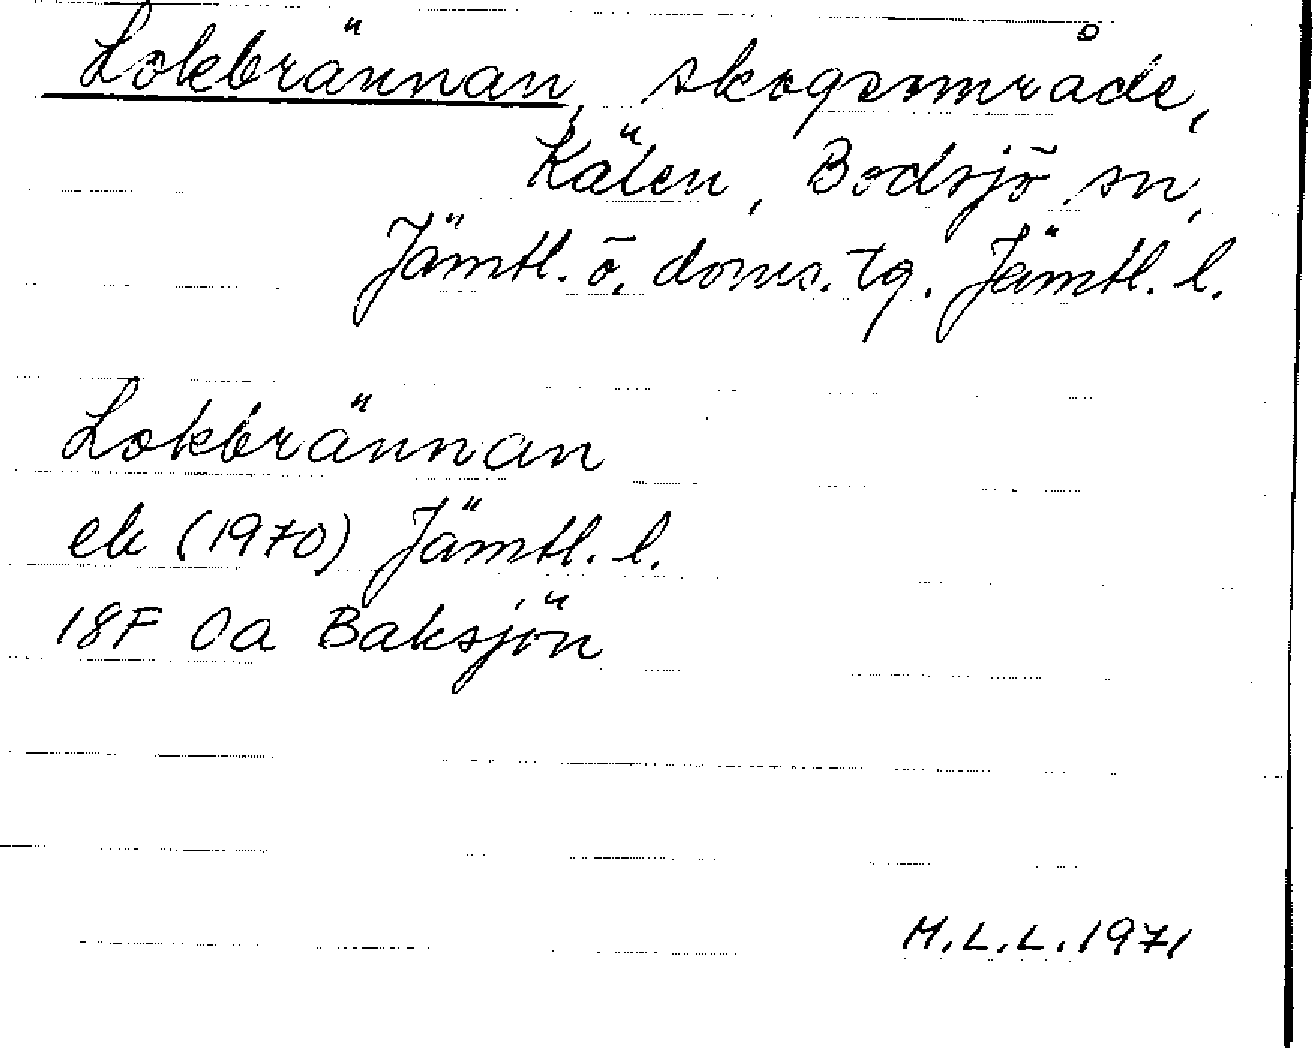 Lokbrännan, skogsområde,
Kälen, Bodsjö sn,
Jämtl. ö. doms. tg. Jämtl. l.
Lokbrännan
ek (1970) Jämtl. l.
18F 0a Baksjön
M.L.L. 1971